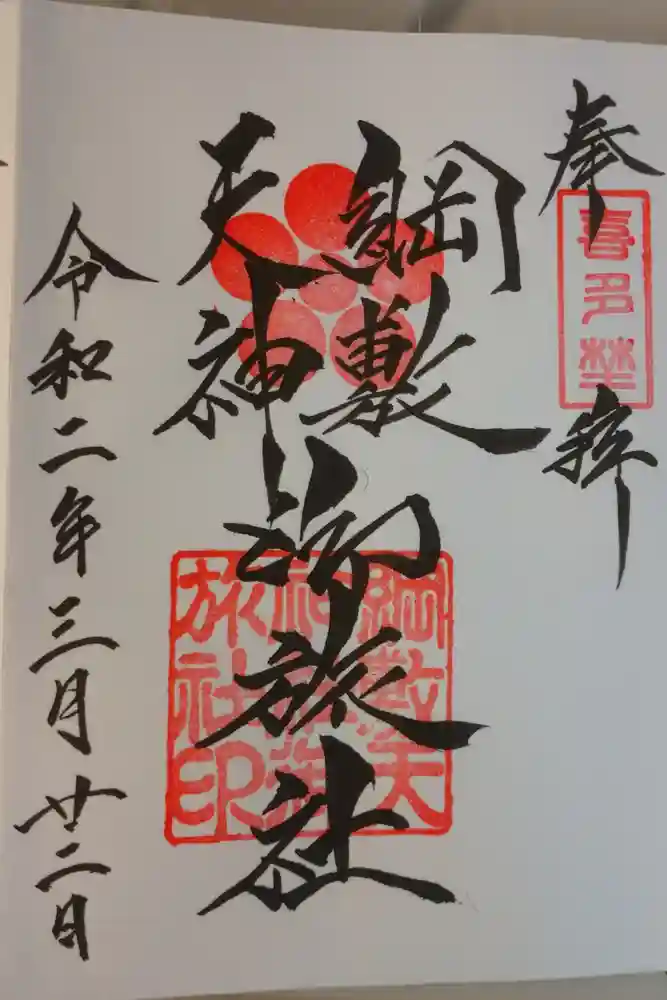 奉拝
喜多埜
綱敷
天神
御旅社
綱敷天
神社御
旅社印
令和二年三月廿二日